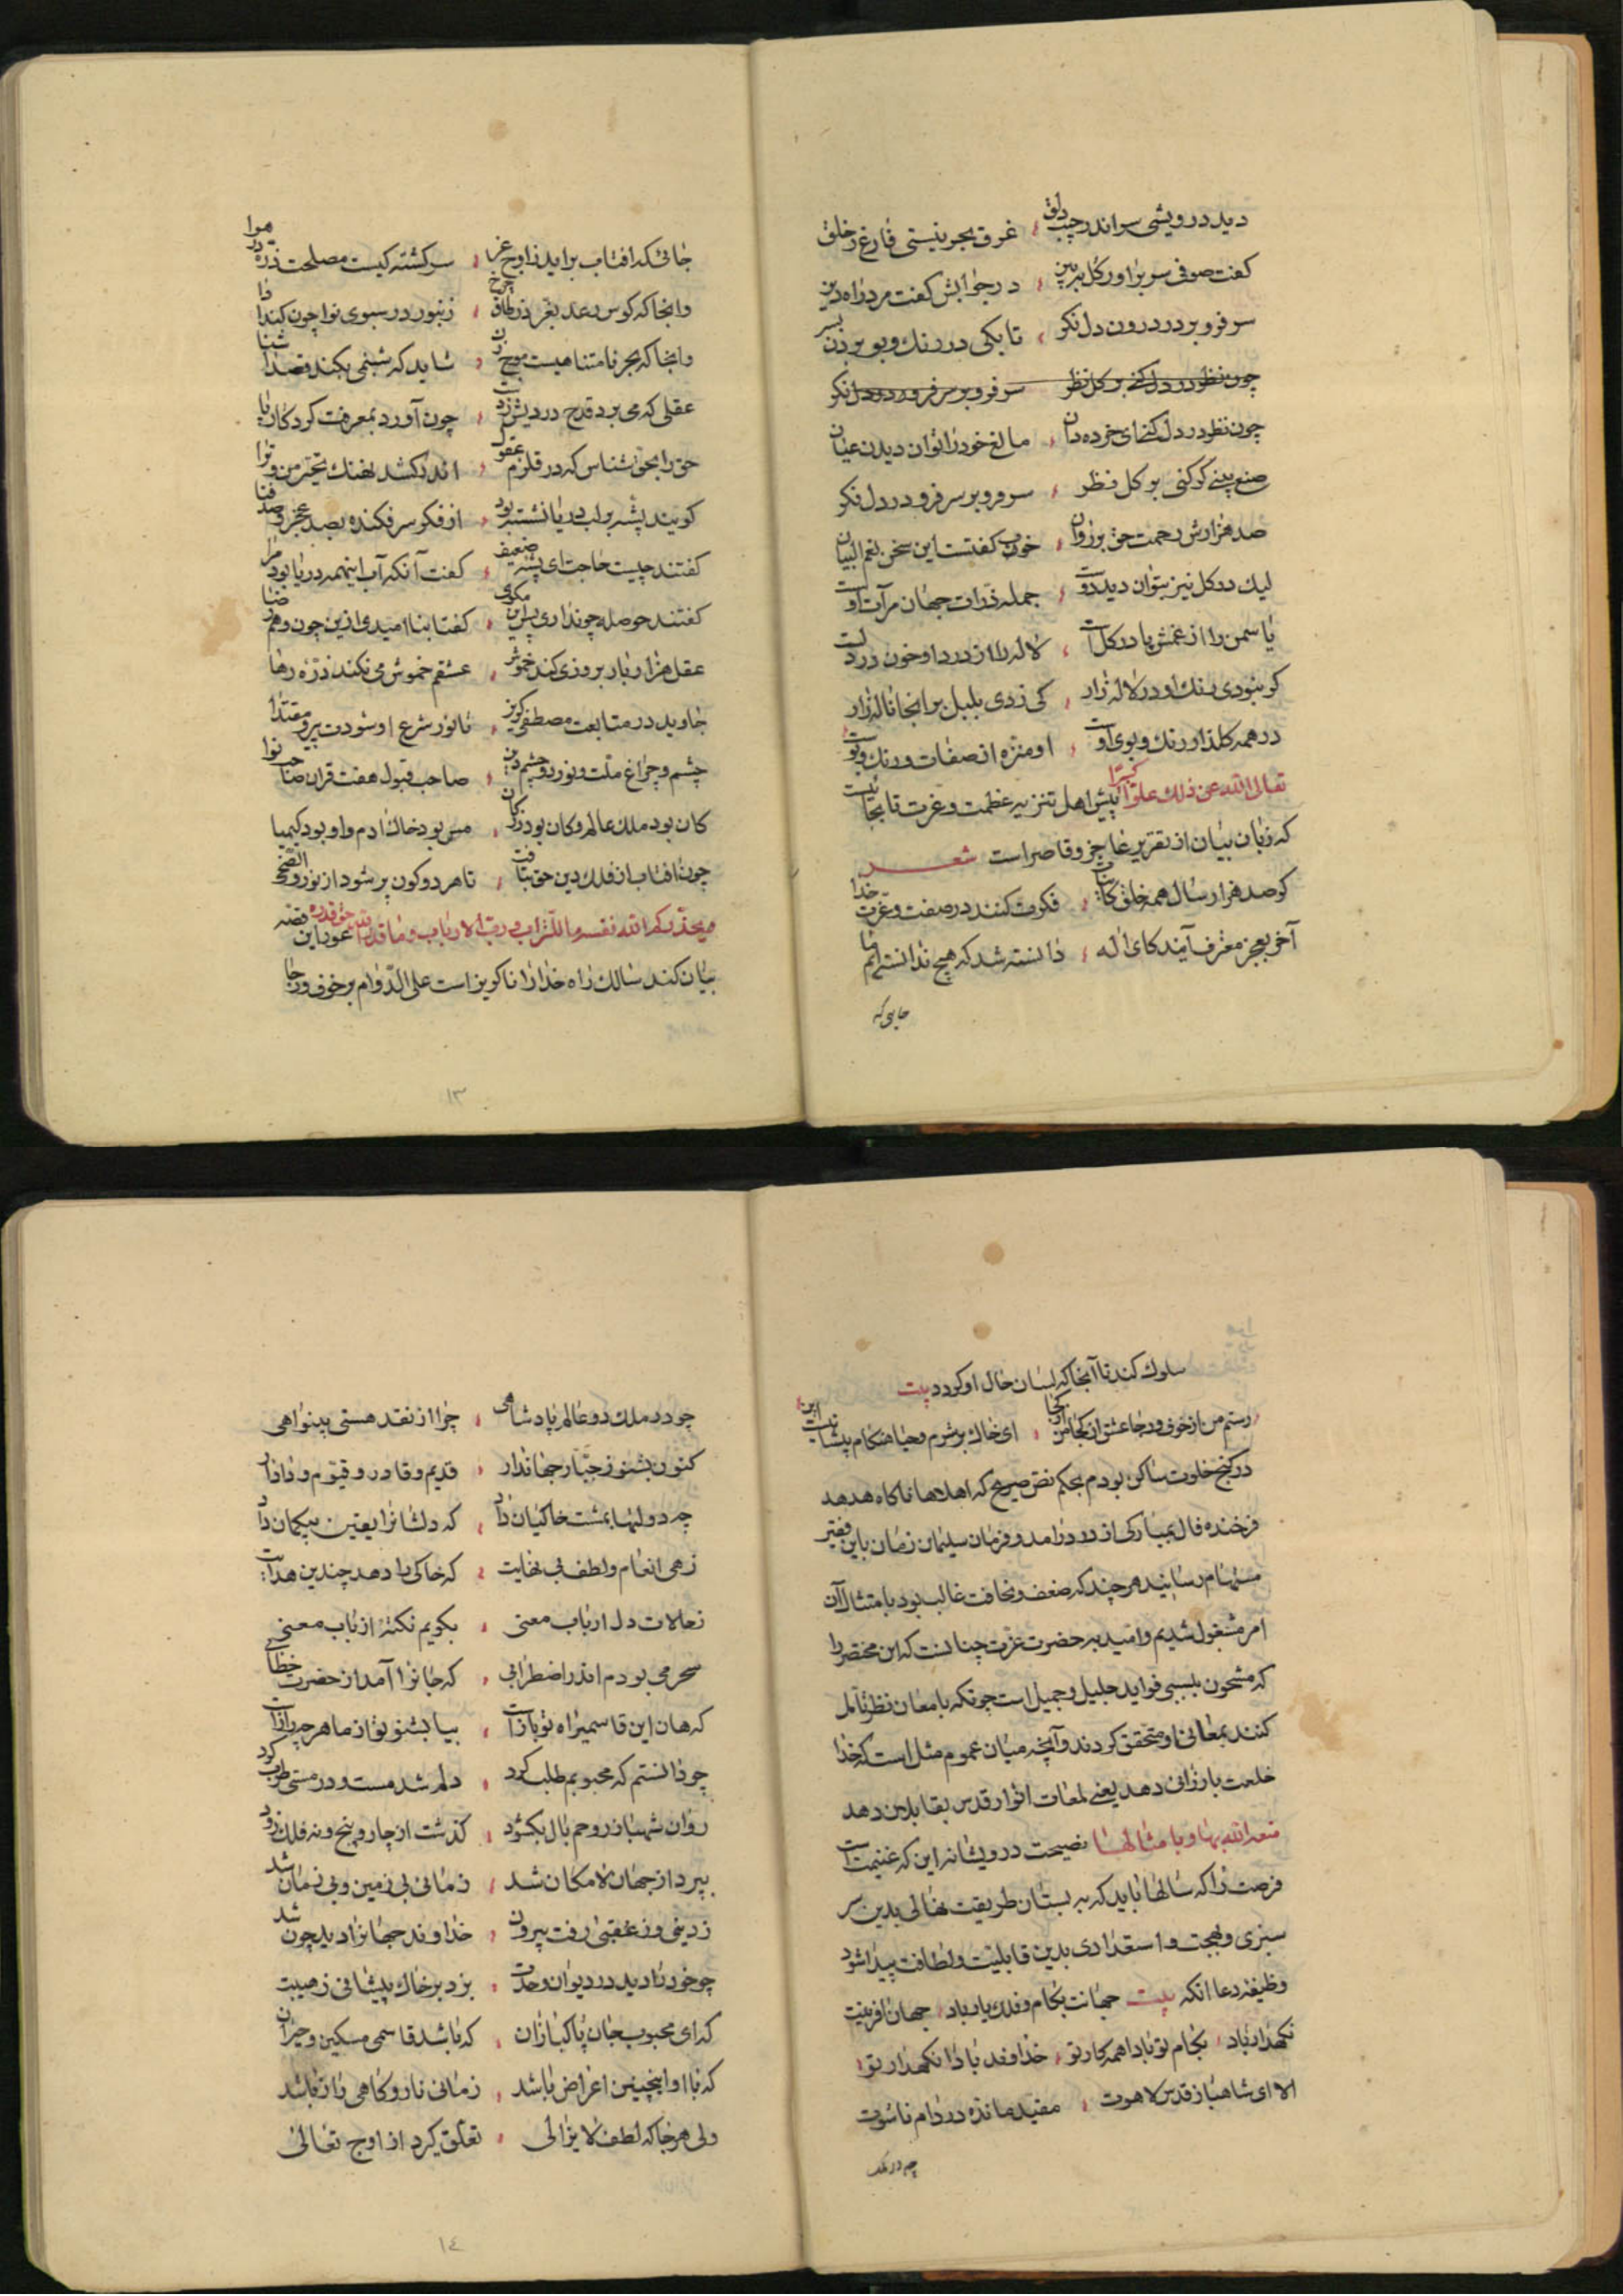 دید درویشی سر اندر جیب دلق ؛ غرق بحر نیستی فارغ ز خلق
کفت صوفی سر براور کل ببین ؛ در جوابش کفت مرد راه دین
سر فرو بر در درون دل نکر ؛ تا بکی در رنك و بو بردن بسر
چون نظر در دل کنی بر کل نظر سر فرو بر سر فرو در دل نکر
چون نظر در دل کنی ای خرده دان ؛ مالغ خود را توان دیدن عیان
صنع بینی کر کنی بر کل نظر ؛ سر فرو بر سر فرو در دل نکر
صد هزارش رحمت حق بر روان ؛ خوب کفتست این سخن نعم البیان
لیك در کل نیز بتوان دید دوست ؛ جمله ذرات جهان مرآت اوست
یاسمن را از غمش پا در کل است ؛ لاله را از درد او خون در دلست
کر نبودی رنك او در لاله زار ؛ کی زدی بلبل بر انجا ناله زار
در همه کلزار رنك و بوی اوست ؛ او منزه از صفات و رنك و بوست
تعالی الله عن ذلك علوا کبیرا پیش اهل تنزیه عظمت و عزت تا بجائیست
که زبان بیان از تقریر عاجز و قاصر است شعر
کر صد هزار سال همه خلق کاینات ؛ فکرت کنند در صفت و عزت خدا
آخر بعجز معترف آیند کای اله ؛ دانسته شد که هیچ ندانسته‌ایم ما
جایی که
جائی که افتاب براید ز اوج عز ؛ سرکشته کیست مصلحت ذره در هوا
وانجا که کوس رعد بغرد ز طاق چرخ ؛ زنبور در سبوی نوا چون کند ادا
وانجا که بحر نامتناهیست موج زن ؛ شاید که شبنمی بکند قصد آشنا
عقلی که می برد قدح دردیش ز دست ؛ چون آورد بمعرفت کردکار پا
حق را بحق شناس که در قلزم عقول ؛ اندر کشد نهنك تحیر من و ترا
کویند پشه بر لب دریا نشسته بود ؛ از فکر سر فکنده بصد عجز و صد فنا
کفتند چیست حاجت ای پشه ضعیف ؛ کفت آنکه آب اینهمه دریا بود مرا
کفتند حوصله چو نداری پس این مکوی ؛ کفتا بنا امیدی ازین چون دهم رضا
عقل هزار بار بروزی کند خموش ؛ عشقم خموش می نکند ذره رها
جاوید در متابعت مصطفی کریز ؛ تا نور شرع او شودت پیر و مقتدا
چشم و چراغ ملت و نور دو چشم دین ؛ صاحب قبول هفت قران صاحب نوا
کان بود ملك عالم و کان بود زر کان ؛ مس بود خاك ادم و او بود کیمیا
چون افتاب از فلك دین حق بتافت ؛ تا هر دو کون پر شود از نور والضحی
ویحذرکم الله نفسه ما للتراب و رب الارباب و ما قدروا الله حق قدره غور این قصه
بیان کند سالك راه خدا را ناکریز است علی الدوام بر خوف و رجا
۱۳
سلوك کند تا آنجا که لسان حال او کردد بیت
رستم من از خوف و رجا عشق از کجا من از کجا ؛ ای خاك بر شرم و حیا هنکام پیشانیست این
در کنج خلوت ساکن بودم بحکم نص صریح که اهلها ناکاه هدهد
فرخنده فال بمبارکی از در درامد و فرمان سلیمان زمان باین فقیر
مستهام رسانید هر چند که ضعف و نحافت غالب بود بامتثال آن
امر مشغول شدیم و امید بحضرت عزت چنانست که این مختصر را
که مشحون ببسی فواید جلیل و جمیل است چونکه بامعان نظر تامل
کنند بمعانی او متحقق کردند و آنچه میان عموم مثل است که خدا
خلعت بارزانی دهد یعنی لمعات انوار قدس بقابلان دهد
متعه الله بها و بامثالها نصیحت درویشانه این که غنیمت است
فرصت را که سالها باید که به بستان طریقت نهالی بدین سر
سبزی و بهجت و استعدادی بدین قابلیت و لطافت پیدا شود
وظیفه دعا انکه بیت جهانت بکام و فلك یار باد ؛ جهان افرینت
نکهدار باد ؛ بکام تو بادا همه کار تو ؛ خداوند بادا نکهدار تو ؛
الا ای شاهباز قدس لاهوت ؛ مقید مانده در دام ناسوت
چو در ملك
چو در ملك دو عالم پادشاهی ؛ چرا از نقد هستی بینواهی
کنون بشنو ز جبار جهاندار ؛ قدیم و قادر و قیوم و دادار
چه دولتها بمشت خاکیان داد ؛ که دلشانرا یقین بیکمان داد
زهی انعام و لطف بی نهایت ؛ که خاکی را دهد چندین هدایت
ز حالات دل ارباب معنی ؛ بکویم نکته از باب معنی
سحر می بودم اندر اضطرابی ؛ که جانرا آمد از حضرت خطابی
که هان این قاسمی راه تو باز است ؛ بیا بشنو تو از ما هر چه راز است
چو دانستم که محبوبم طلب کرد ؛ دلم شد مست و در مستی طرب کرد
روان شهباز روحم بال بکشود ؛ کذشت از چار و پنج و نه فلك زود
ببرد از جهان لامکان شد ؛ زمانی بی زمین و بی زمان شد
ز دینی وز عقبی رفت بیرون ؛ خداوند جهانرا دید چون شد
چو خود را دید در دیوان وحدت ؛ بزد بر خاك پیشانی ز هیبت
که ای محبوب جان پاکبازان ؛ که باشد قاسمی مسکین و حیران
که با او اینچنین اعزاض باشد ؛ زمانی ناز و کاهی راز باشد
ولی هر جا که لطف لا یزالی ؛ تعلق کیرد از اوج تعالی
۱٤